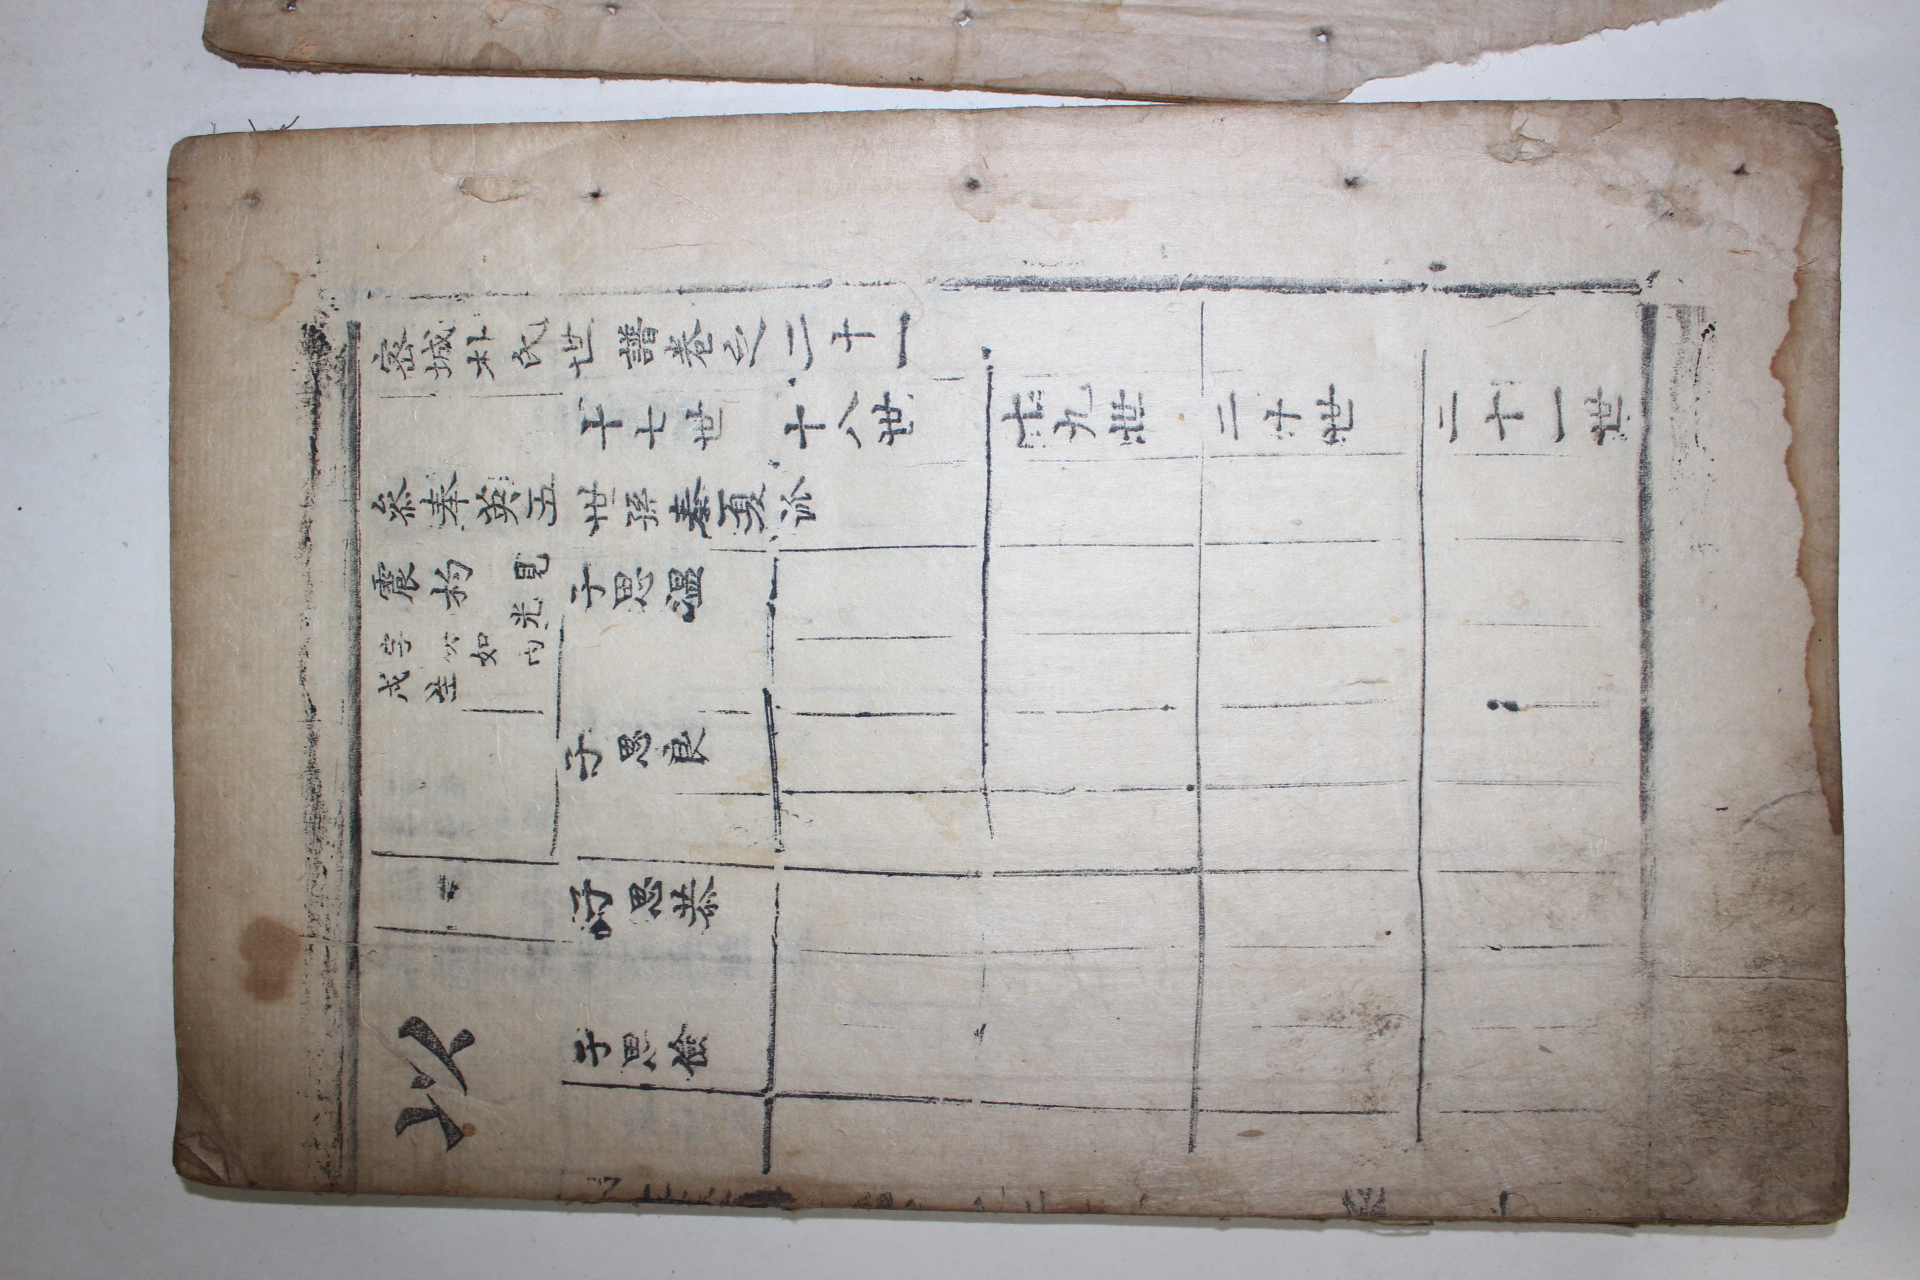 密城朴氏世譜卷之二十一
十七世
十八世
十九世
二十世
二十一世
參奉英五世孫秦夏派
震杓
見光內
字如
戌生
子思溫
子思良
子思恭
子思儉
以